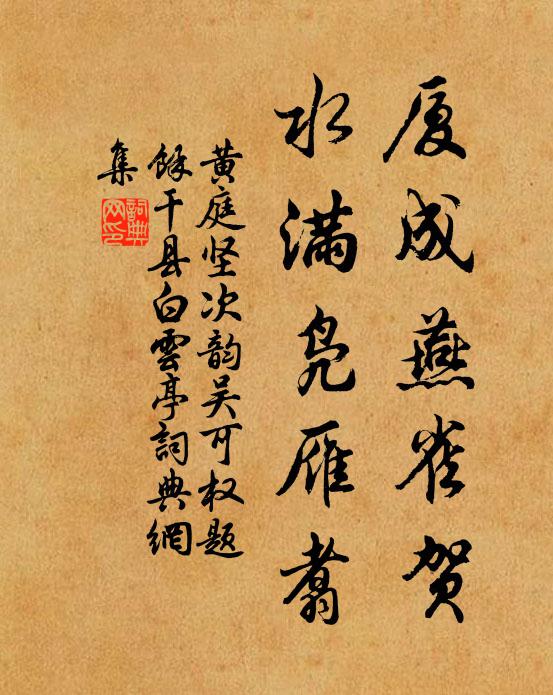 厦成燕雀贺
水满凫雁翥
黄庭坚次韵吴可权题
馀干县白雲亭詞典網
集
詞典網印